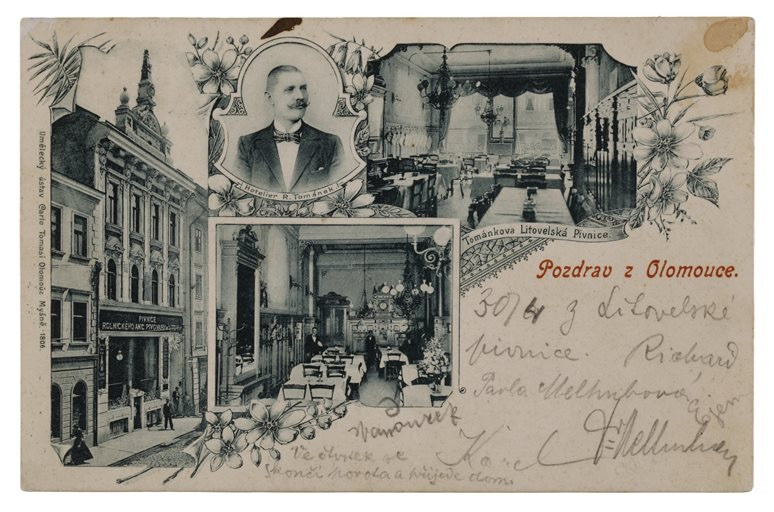 Umělecký ústav Carla Tomasi Olomouc. 1896
PIVNICE
ROLNICKÉHO AKC. PIVOVARU
Hotelier R. Tománek
Tománkova Litovelská Pivnice.
Pozdrav z Olomouce.
30/4 z Litovelské
pivnice. Richard
Pavla Melhubová
Karel
Ve čtvrtek se
skončí porota a přijede domů